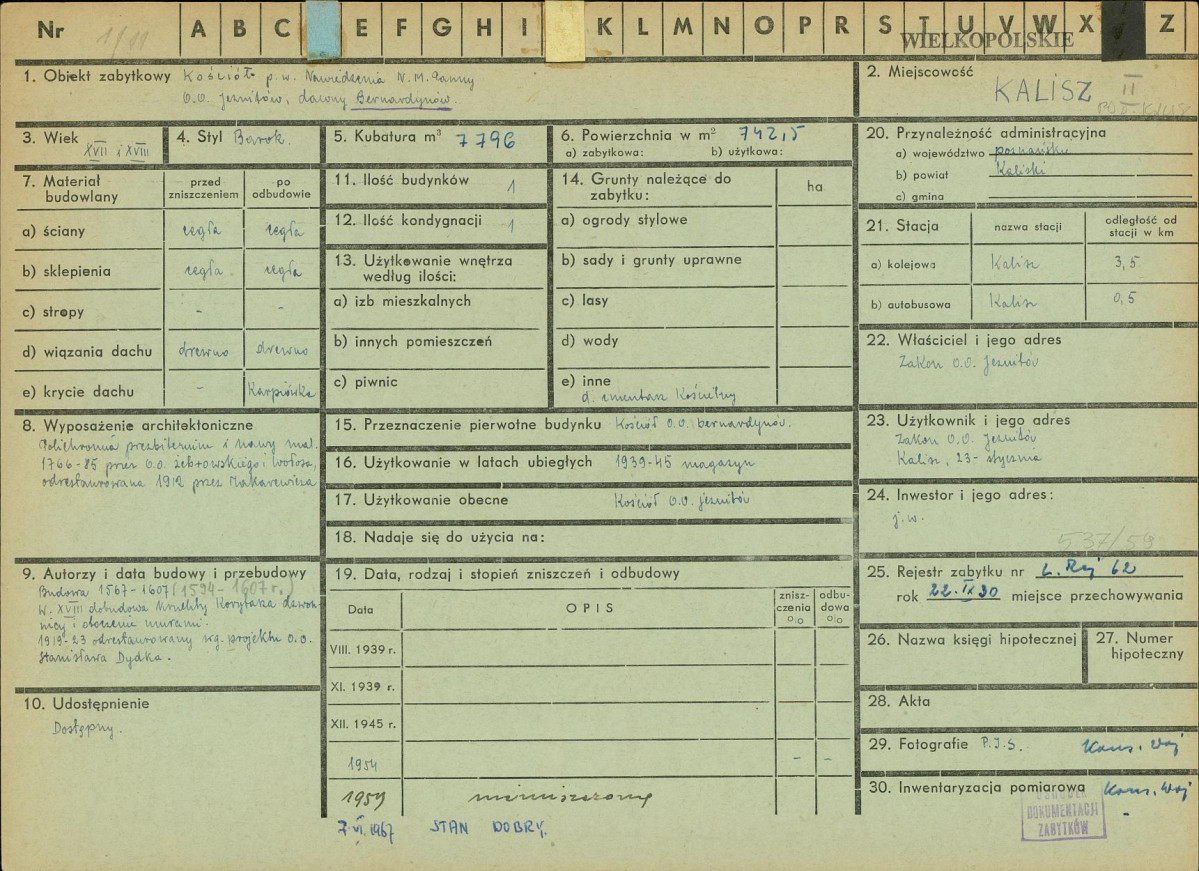 Nr 1/11 A B C E F G H I K L M N O P R S T U V W X Z
WIELKOPOLSKIE
1. Obiekt zabytkowy Kościół p.w. Nawiedzenia N.M.Panny
O.O. Jezuitów, dawny Bernardynów.
2. Miejscowość
KALISZ II
3. Wiek XVII i XVIII
4. Styl Barok.
5. Kubatura m³ 7796
6. Powierzchnia w m² 742,5
a) zabytkowa: b) użytkowa:
7. Materiał budowlany
przed zniszczeniem
po odbudowie
a) ściany cegła cegła
b) sklepienia cegła. cegła
c) stropy - -
d) wiązania dachu drewno drewno
e) krycie dachu - Karpiówka
8. Wyposażenie architektoniczne
Polichromia prezbiterium i nawy mal.
1766-85 przez O.O. Żebrowskiego i Wołosa,
odrestaurowana 1912 przez Makarewicza
9. Autorzy i data budowy i przebudowy
Budowa 1567-1607 (1594-1607 r.)
W. XVIII dobudowa kruchty Korytarza dzwon-
nicy i otoczenie murami.
1919-23 odrestaurowany wg. projektu O.O.
Stanisława Dydka.
10. Udostępnienie
Dostępny.
11. Ilość budynków 1
12. Ilość kondygnacji 1
13. Użytkowanie wnętrza
według ilości:
a) izb mieszkalnych
b) innych pomieszczeń
c) piwnic
14. Grunty należące do
zabytku:
ha
a) ogrody stylowe
b) sady i grunty uprawne
c) lasy
d) wody
e) inne
d. cmentarz Kościelny
15. Przeznaczenie pierwotne budynku Kościół O.O. bernardynów.
16. Użytkowanie w latach ubiegłych 1939-45 magazyn
17. Użytkowanie obecne Kościół O.O. jezuitów
18. Nadaje się do użycia na:
19. Data, rodzaj i stopień zniszczeń i odbudowy
Data
OPIS
znisz-
czenia
%
odbu-
dowa
%
VIII. 1939 r.
XI. 1939 r.
XII. 1945 r.
1954 - -
1959 niezniszczone
7.VI.1967 STAN DOBRY.
20. Przynależność administracyjna
a) województwo poznańskie
b) powiat Kaliski
c) gmina
21. Stacja
nazwa stacji
odległość od
stacji w km
a) kolejowa Kalisz 3,5
b) autobusowa Kalisz 0,5
22. Właściciel i jego adres
Zakon O.O. Jezuitów
23. Użytkownik i jego adres
Zakon O.O. Jezuitów
Kalisz, 23-stycznia
24. Inwestor i jego adres:
j.w.
537/59
25. Rejestr zabytku nr L. Rej 62
rok 22.IX 30 miejsce przechowywania
26. Nazwa księgi hipotecznej
27. Numer
hipoteczny
28. Akta
29. Fotografie P.I.S. Kons. Woj
30. Inwentaryzacja pomiarowa Kons. Woj
-
OŚRODEK
DOKUMENTACJI
ZABYTKÓW